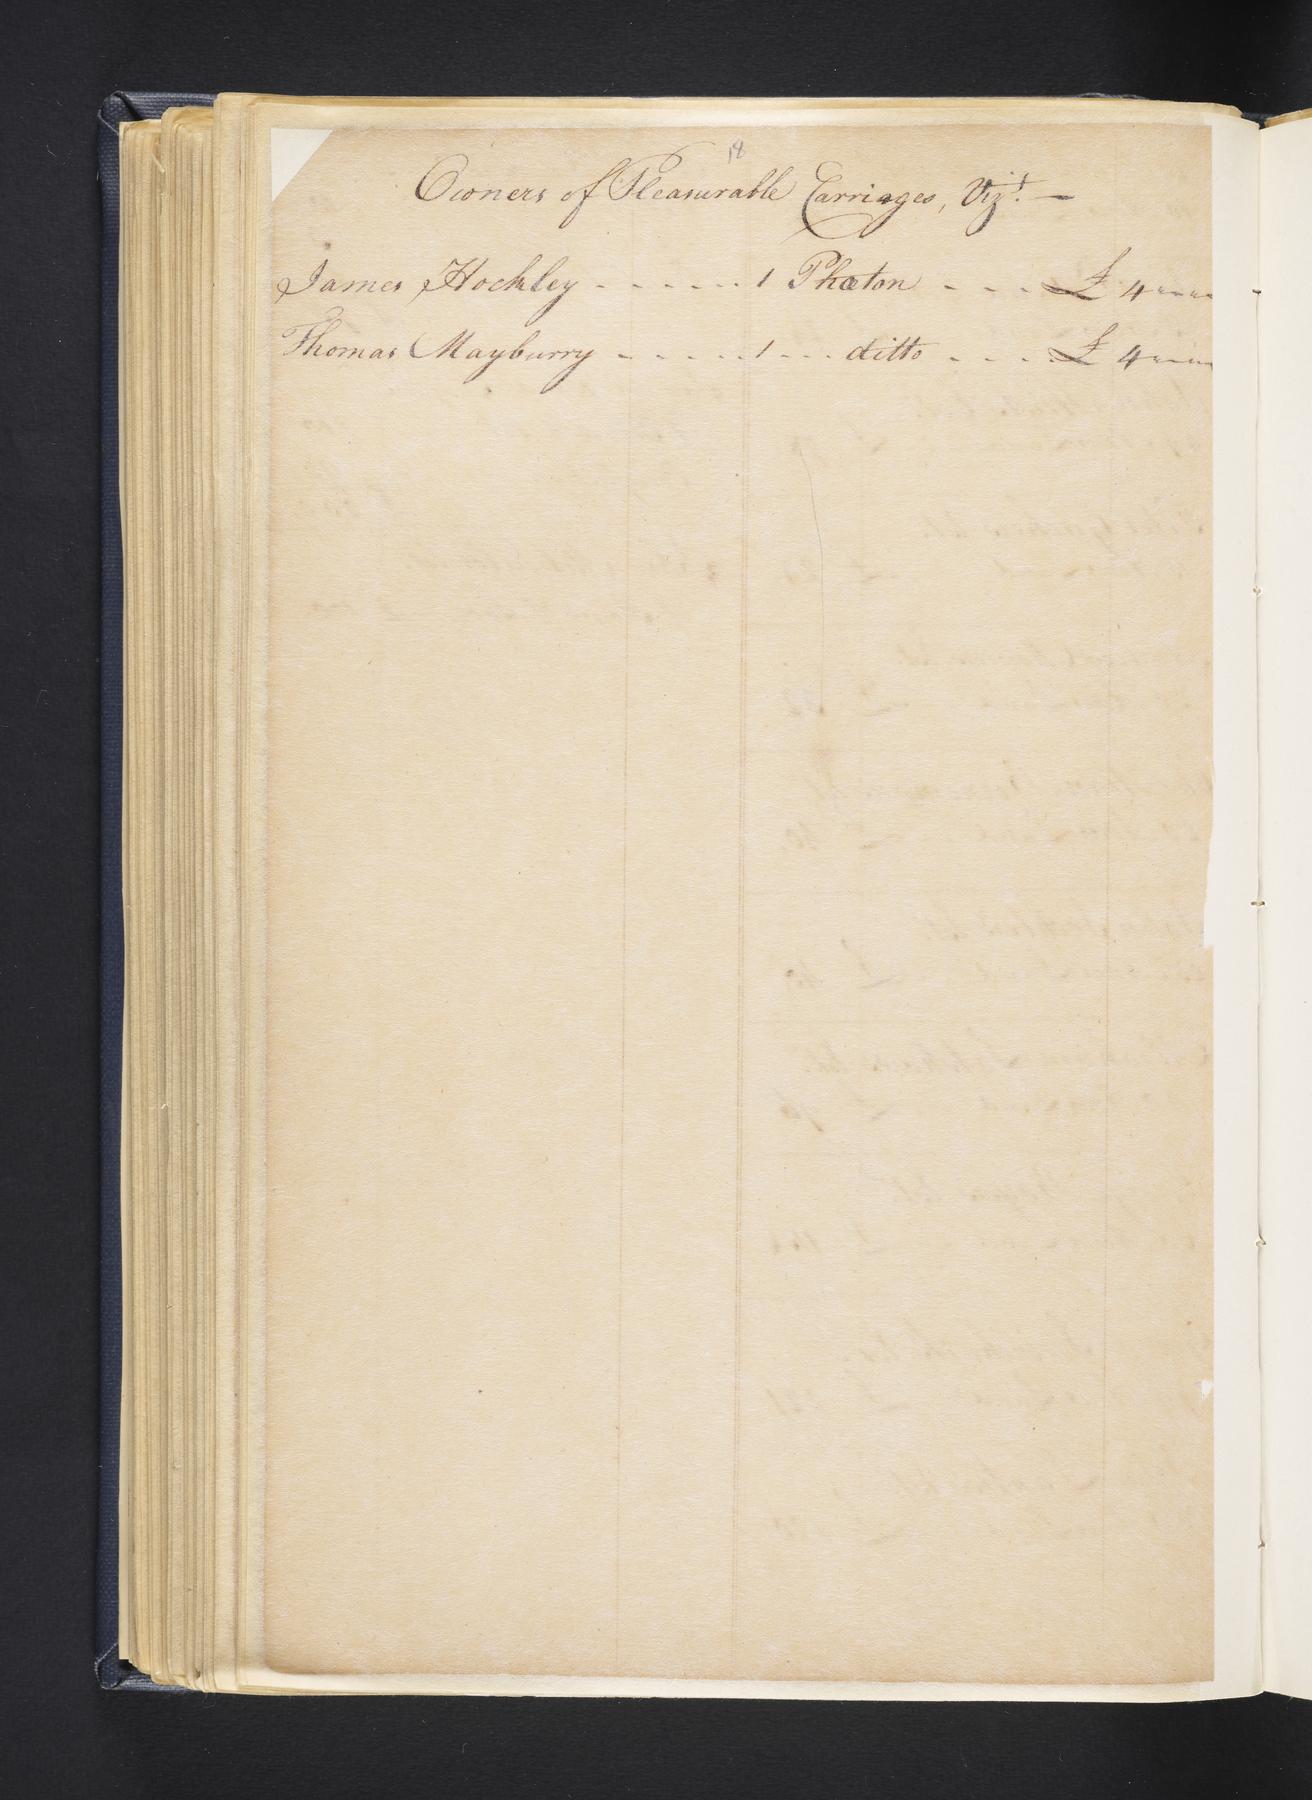 18
Owners of Pleasurable Carriages, Vizt. —
James Hockley - - - - - - 1 Phæton - - - £ 4 - - - -
Thomas Mayburry - - - - - 1 - - - ditto - - - - £ 4 - - - -